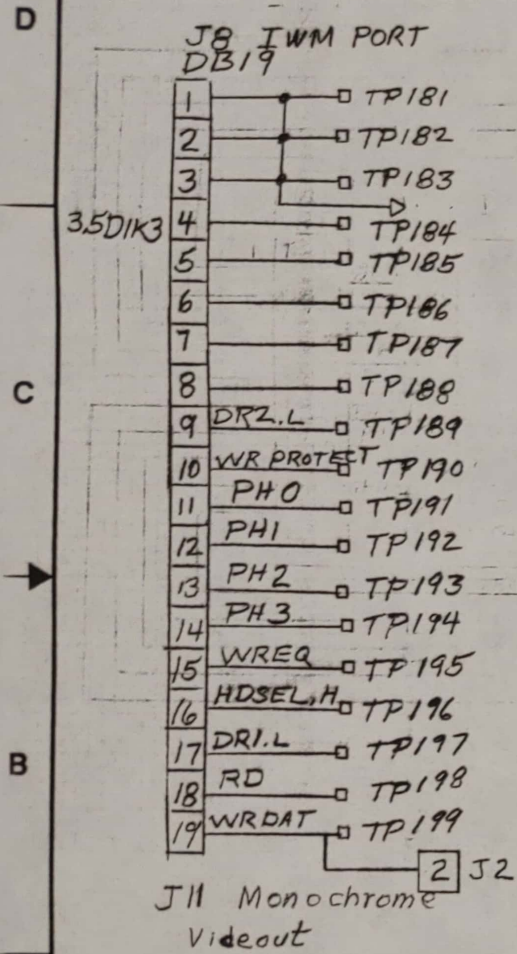 D
J8 IWM PORT
DB19
1 TP181
2 TP182
3 TP183
3.5DIK3 4 TP184
5 TP185
6 TP186
7 TP187
C
8 TP188
9 DR2.L TP189
10 WR PROTECT TP190
11 PH0 TP191
12 PH1 TP192
13 PH2 TP193
14 PH3 TP194
15 WREQ TP195
16 HDSEL.H TP196
B
17 DR1.L TP197
18 RD TP198
19 WRDAT TP199
2 J2
J11 Monochrome
Videout